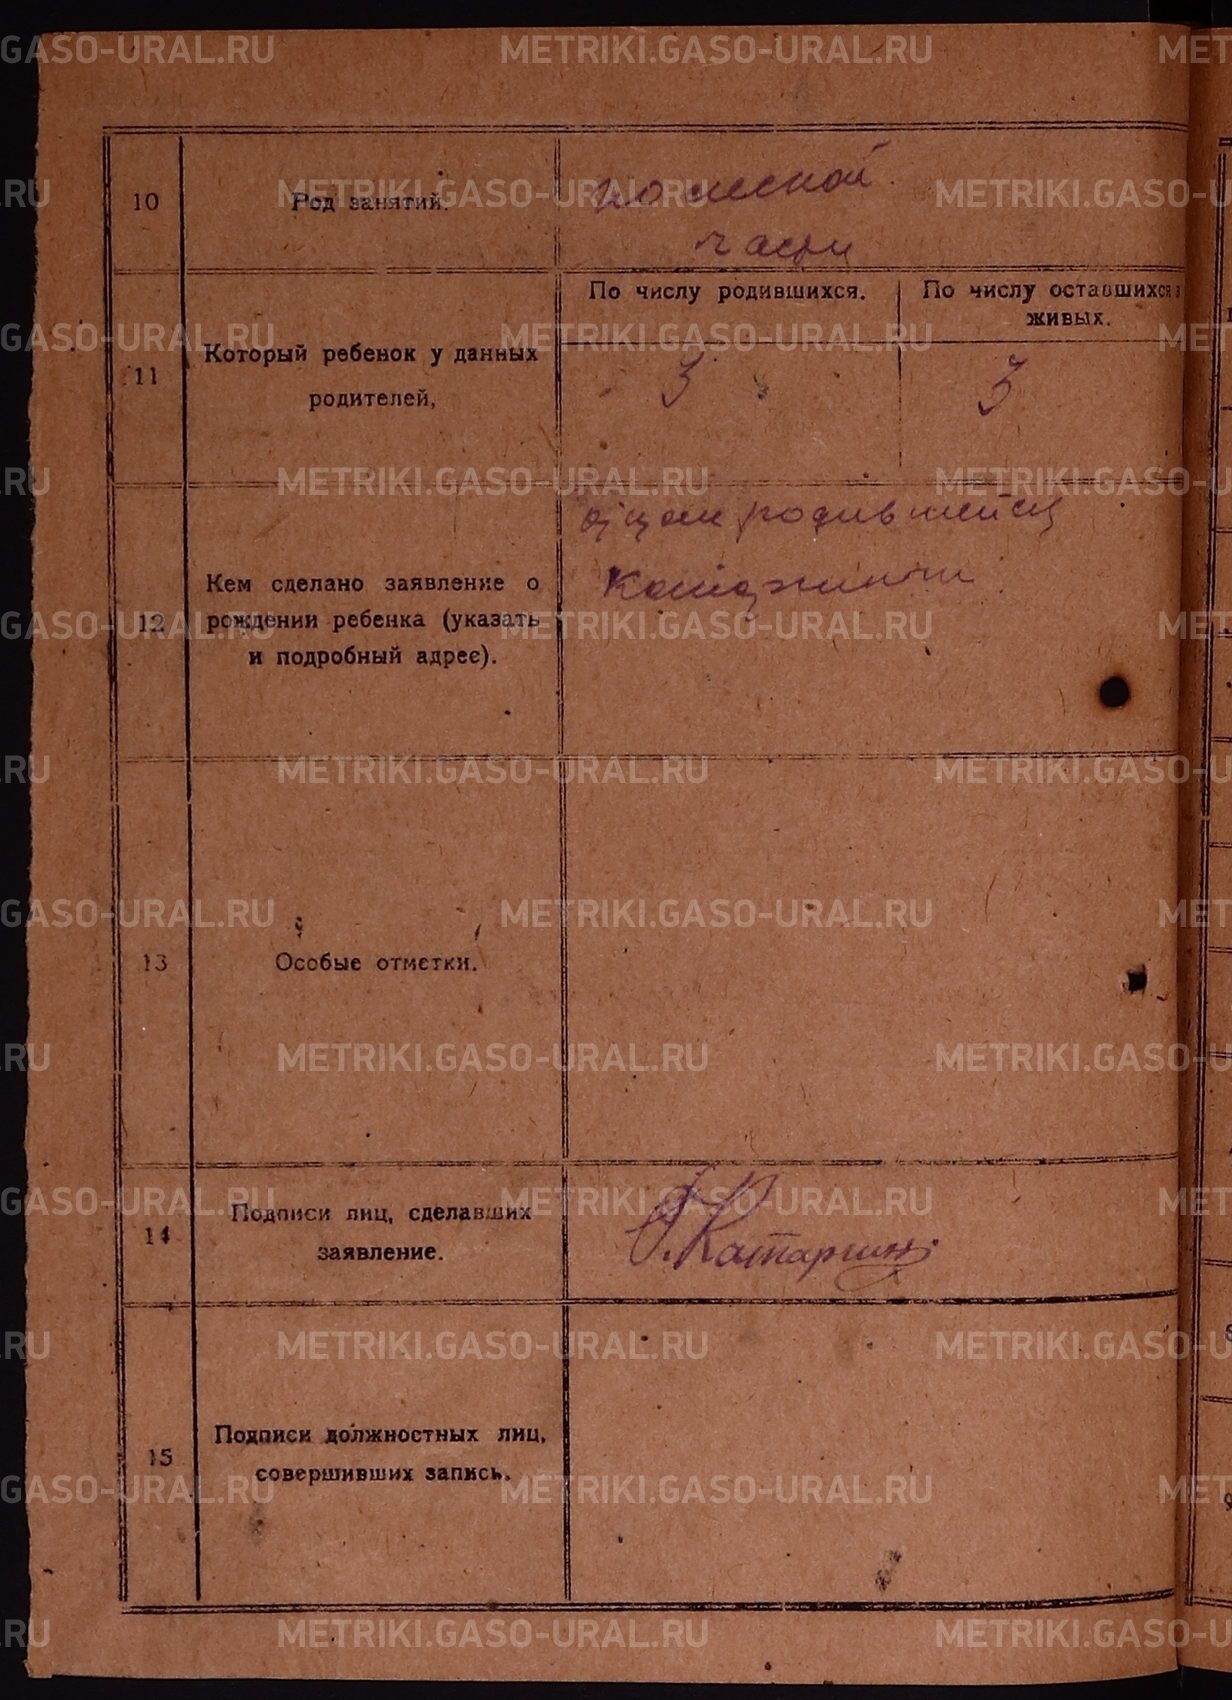 10
Род занятий.
по лесной
части
11
Который ребенок у данных
родителей,
По числу родившихся.
По числу оставшихся в
живых.
3
3
12
Кем сделано заявление о
рождении ребенка (указать
и подробный адрес).
отцем родившейся
13
Особые отметки.
14
Подписи лиц, сделавших
заявление.
Катаргин
15
Подписи должностных лиц,
совершивших запись.
METRIKI.GASO-URAL.RU